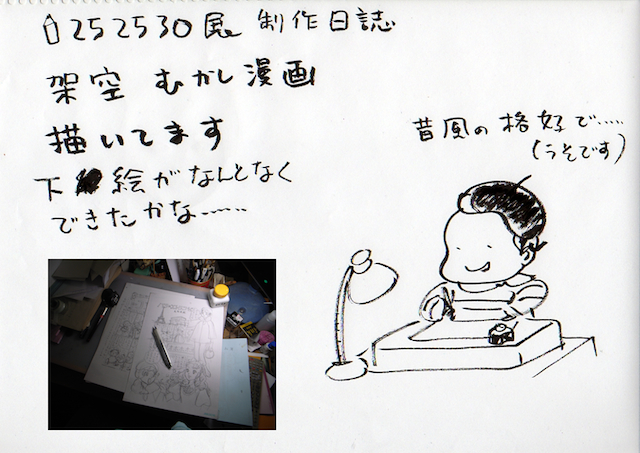 252530展 制作日誌
架空 むかし漫画
描いてます
下絵がなんとなく
できたかな……
昔風の格好で……
(うそです)